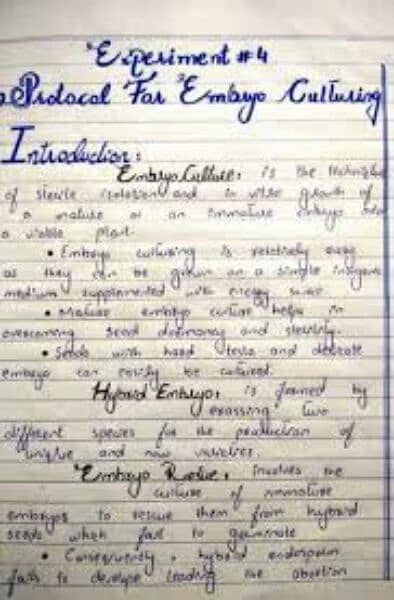 Experiment #4
Protocol For Embryo Culturing
Introduction:
Embryo Culture: is the technique
of sterile isolation and in vitro growth of
a mature or an immature embryo into
a viable plant.
• Embryo culturing is relatively easy
as they can be grown on a simple inorganic
medium supplemented with energy
• Mature embryo culture helps in
overcoming seed dormancy and sterility.
• Seeds with hard testa and delicate
embryo can easily be cultured.
Hybrid Embryo: is formed by
crossing two
different species for the production of
unique and new varieties.
Embryo Rescue: involves the
culture of immature
embryos to rescue them from hybrid
seeds which fail to germinate
• Consequently, hybrid endosperm
fails to develope leading the abortion